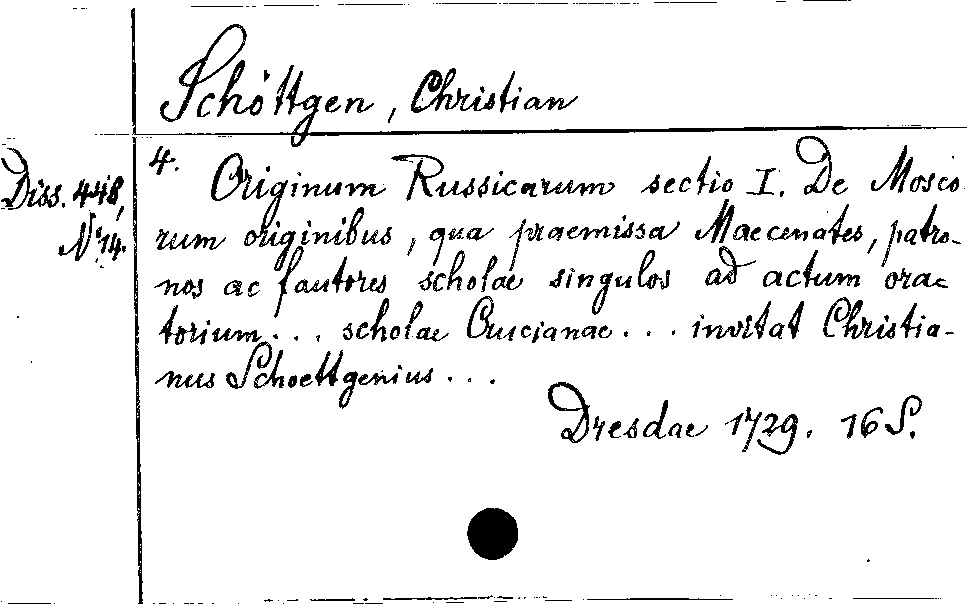 Schöttgen, Christian
Diss. 448,
No 14.
4. Originum Russicarum sectio I. De Mosco-
rum originibus, qua praemissa Maecenates, patro-
nos ac fautores scholae singulos ad actum ora-
torium... scholae Crucianae... invitat Christia-
nus Schoettgenius...
Dresdae 1729. 16 S.